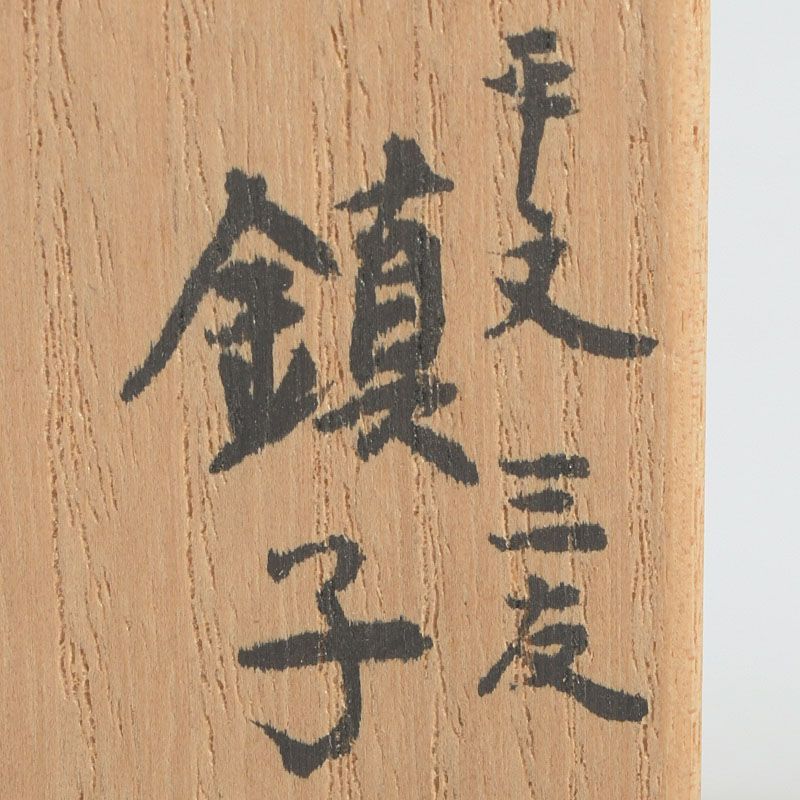 平文 三友
鎮子